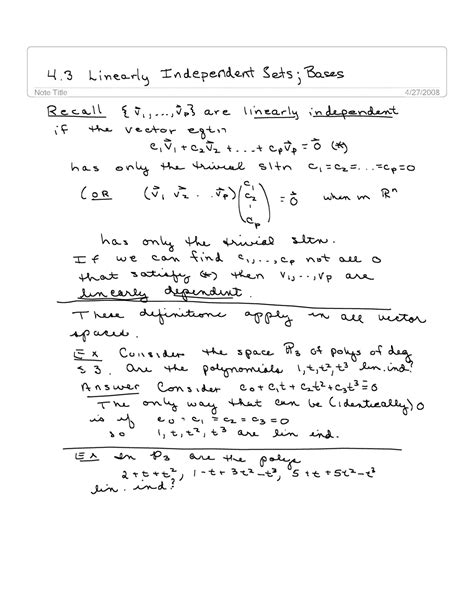 4.3 Linearly Independent Sets; Bases
Note Title
4/27/2008
Recall {v⃗₁,...,v⃗ₚ} are linearly independent
if the vector eqtn
c₁v⃗₁ + c₂v⃗₂ + ... + cₚv⃗ₚ = 0⃗ (*)
has only the trivial sltn c₁=c₂=...=cₚ=0
(OR (v⃗₁ v⃗₂ ... v⃗ₚ)(c₁ c₂ ⋮ cₚ) = 0⃗ when in ℝⁿ
has only the trivial sltn.
If we can find c₁,...,cₚ not all 0
that satisfy (*) then v₁,...,vₚ are
linearly dependent.
These definitions apply in all vector
spaces.
Ex Consider the space ℙ₃ of polys of deg
≤ 3. Are the polynomials 1,t,t²,t³ lin. ind?
Answer Consider c₀+c₁t+c₂t²+c₃t³≡0
The only way that can be (identically) 0
is if c₀=c₁=c₂=c₃=0
so 1,t,t²,t³ are lin ind.
Ex In P₃ are the polys
2+t+t², 1-t+3t²-t³, 5+t+5t²-t³
lin. ind?